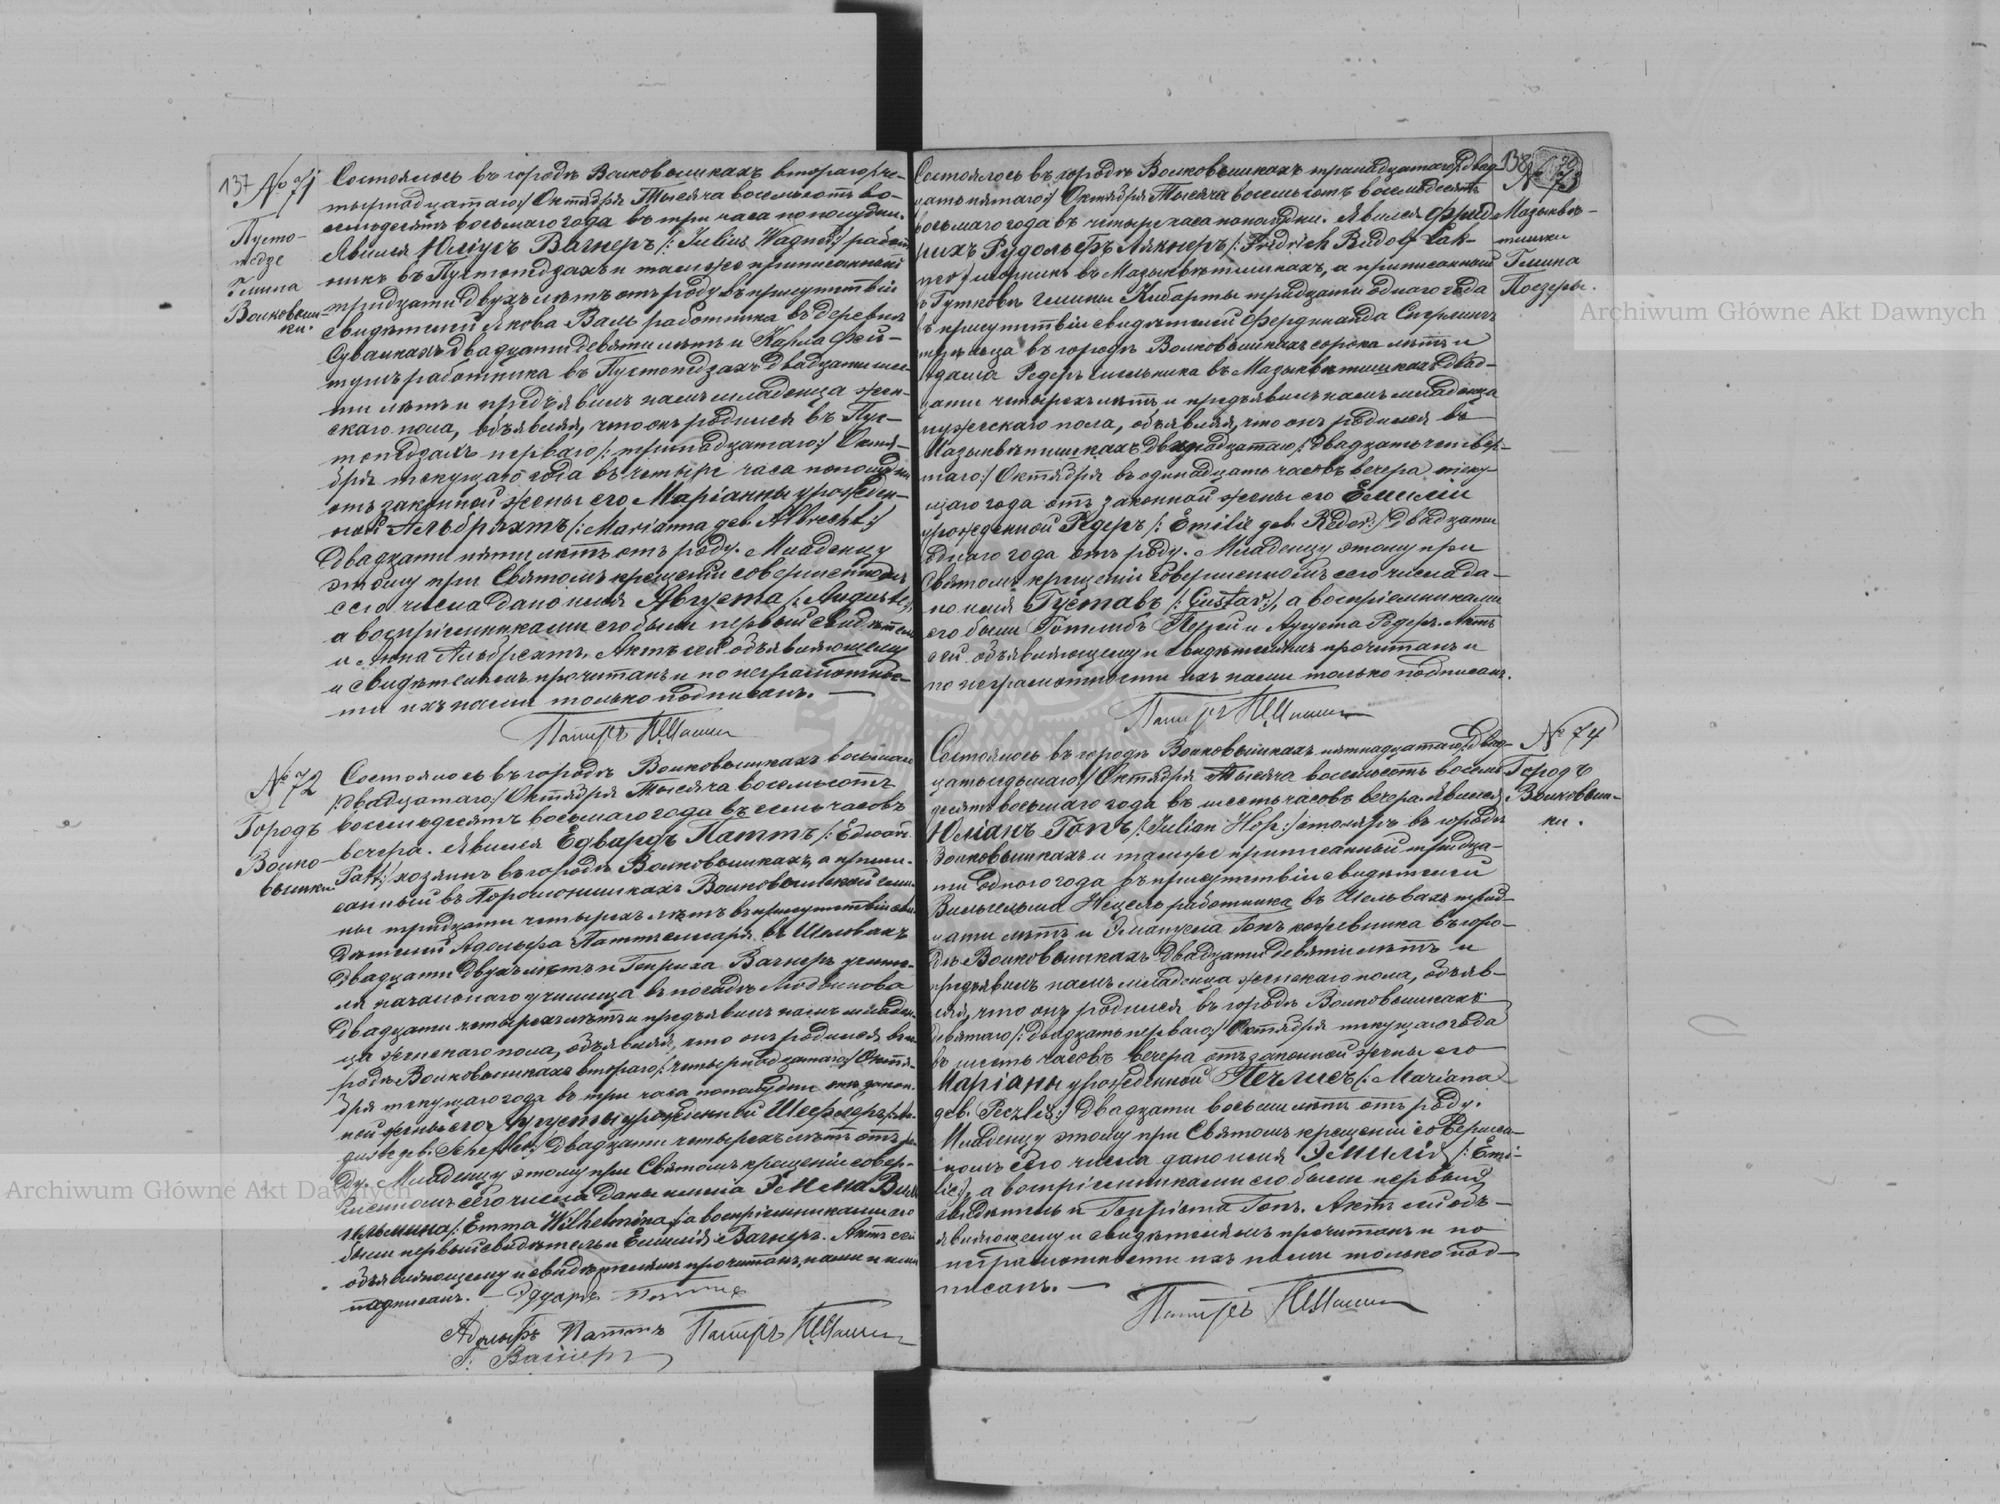 137 № 71
Пусто-
педзе
Гмина
Волковыш-
ки.
Состоялось въ городѣ Волковышкахъ втораго /: че-
тырнадцатаго :/ Октября Тысяча восемьсотъ во-
семьдесятъ восьмаго года въ три часа пополудни.
Явился Юліусъ Вагнеръ /: Julius Wagner :/ работ
никъ въ Пустопедзахъ и тамъ же приписанный
тридцати двухъ лѣтъ отъ роду въ присутствіи
свидѣтелей Якова Валь работника въ деревнѣ
двадцати девяти лѣтъ и Карла
работника въ Пустопедзахъ двадцати
лѣтъ и предъявилъ намъ младенца жен-
скаго пола, объявляя, что онъ родился въ Пус-
топедзахъ перваго /: тринадцатаго :/ Октя-
бря текущаго года въ четыре часа пополудни
отъ законной жены его Маріанны урожден-
ной Альбрехтъ /: Marianna geb. Albrecht :/
двадцати пяти лѣтъ отъ роду. Младенцу
этому при Святомъ крещеніи совершенномъ
сего числа дано имя Августа /: Auguste :/
а воспріемниками его были первый свидѣтель
и Анна Альбрехтъ. Актъ сей объявляющему
и свидѣтелямъ прочитанъ и по неграмотнос-
ти ихъ нами только подписанъ. —
Пастеръ
№ 72
Городъ
Волко-
вышки
Состоялось въ городѣ Волковышкахъ восьмаго
/: двадцатаго :/ Октября Тысяча восемьсотъ
восемьдесятъ восьмаго года въ семь часовъ
вечера. Явился Едвардъ Паттъ /: Edward
Patt :/ хозяинъ въ городѣ Волковышкахъ, а припи-
санный въ Волковышской гми-
ны тридцати четырехъ лѣтъ въ присутствіи сви-
дѣтелей Адольфа Паттъ въ Шельвахъ
двадцати двухъ лѣтъ и Генриха Вагнеръ учите-
ля начальнаго училища въ посадѣ
двадцати четырехъ лѣтъ и предъявилъ намъ младен-
ца женскаго пола, объявляя, что онъ родился въ го-
родѣ Волковышкахъ втораго /: четырнадцатаго :/ Октя-
бря текущаго года въ три часа пополудни отъ закон-
ной жены его Августы урожденной Шеффлеръ
geb. Scheffler :/ двадцати четырехъ лѣтъ отъ ро-
ду. Младенцу этому при Святомъ крещеніи совер-
шенномъ сего числа даны имена Эмма Виль
гельмина /: Emma Wilhelmina :/ а воспріемниками его
были первый свидѣтель и Емилія Вагнеръ. Актъ сей
объявляющему и свидѣтелямъ прочитанъ, нами и ими
подписанъ. — Эдуардъ Паттъ
Адольфъ Паттъ Пастеръ
Г. Вагнеръ
138 № 73
Мазыквѣ-
тишки
Гмина
Поезеры.
Состоялось въ городѣ Волковышкахъ тринадцатаго /: двад-
цать пятаго :/ Октября Тысяча восемьсотъ восемьдесятъ
восьмаго года въ четыре часа пополудни. Явился Фрид
рихъ Рудольфъ Лакнеръ /: Fridrich Rudolf Lak-
ner :/ въ Мазыквѣтишкахъ, а приписанный
въ Гутковѣ гмины Кибарты тридцати одного года
въ присутствіи свидѣтелей Фердинанда
въ городѣ Волковышкахъ сорока лѣтъ и
Адама Редеръ въ Мазыквѣтишкахъ двад-
цати четырехъ лѣтъ и предъявилъ намъ младенца
мужескаго пола, объявляя, что онъ родился въ
Мазыквѣтишкахъ двѣнадцатаго /: двадцать четвер-
таго :/ Октября въ одинадцать часовъ вечера теку-
щаго года отъ законной жены его Емиліи
урожденной Редеръ /: Emilie geb. Reder :/ двадцати
одного года отъ роду. Младенцу этому при
Святомъ крещеніи совершенномъ сего числа да-
но имя Густавъ /: Gustav :/, а воспріемниками
его были Готлибъ и Августа Редеръ. Актъ
сей объявляющему и свидѣтелямъ прочитанъ и
по неграмотности ихъ нами только подписанъ.
Пастеръ
№ 74
Городъ
Волковыш-
ки.
Состоялось въ городѣ Волковышкахъ пятнадцатаго /: двад-
цать седьмаго :/ Октября Тысяча восемьсотъ восемь
десятъ восьмаго года въ шесть часовъ вечера. Явился
Юліанъ Гопъ /: Julian Hop :/ столяръ въ городѣ
Волковышкахъ и тамъ же приписанный тридца-
ти одного года въ присутствіи свидѣтелей
Вильгельма работника въ Шельвахъ трид-
цати лѣтъ и Эмануеля Гопъ кожевника въ горо-
дѣ Волковышкахъ двадцати девяти лѣтъ и
предъявилъ намъ младенца женскаго пола, объяв-
ляя, что онъ родился въ городѣ Волковышкахъ
девятаго /: двадцать перваго :/ Октября текущаго года
въ шесть часовъ вечера отъ законной жены его
Маріаны урожденной Печлисъ /: Mariana
geb. Peczlis :/ двадцати восьми лѣтъ отъ роду.
Младенцу этому при Святомъ крещеніи соверше-
нномъ сего числа дано имя Эмилія /: Emi-
lie :/, а воспріемниками его были первый
свидѣтель и Генріета Гопъ. Актъ сей объ-
являющему и свидѣтелямъ прочитанъ и по
неграмотности ихъ нами только под-
писанъ. —
Пастеръ
Archiwum Główne Akt Dawnych
Archiwum Główne Akt Dawnych